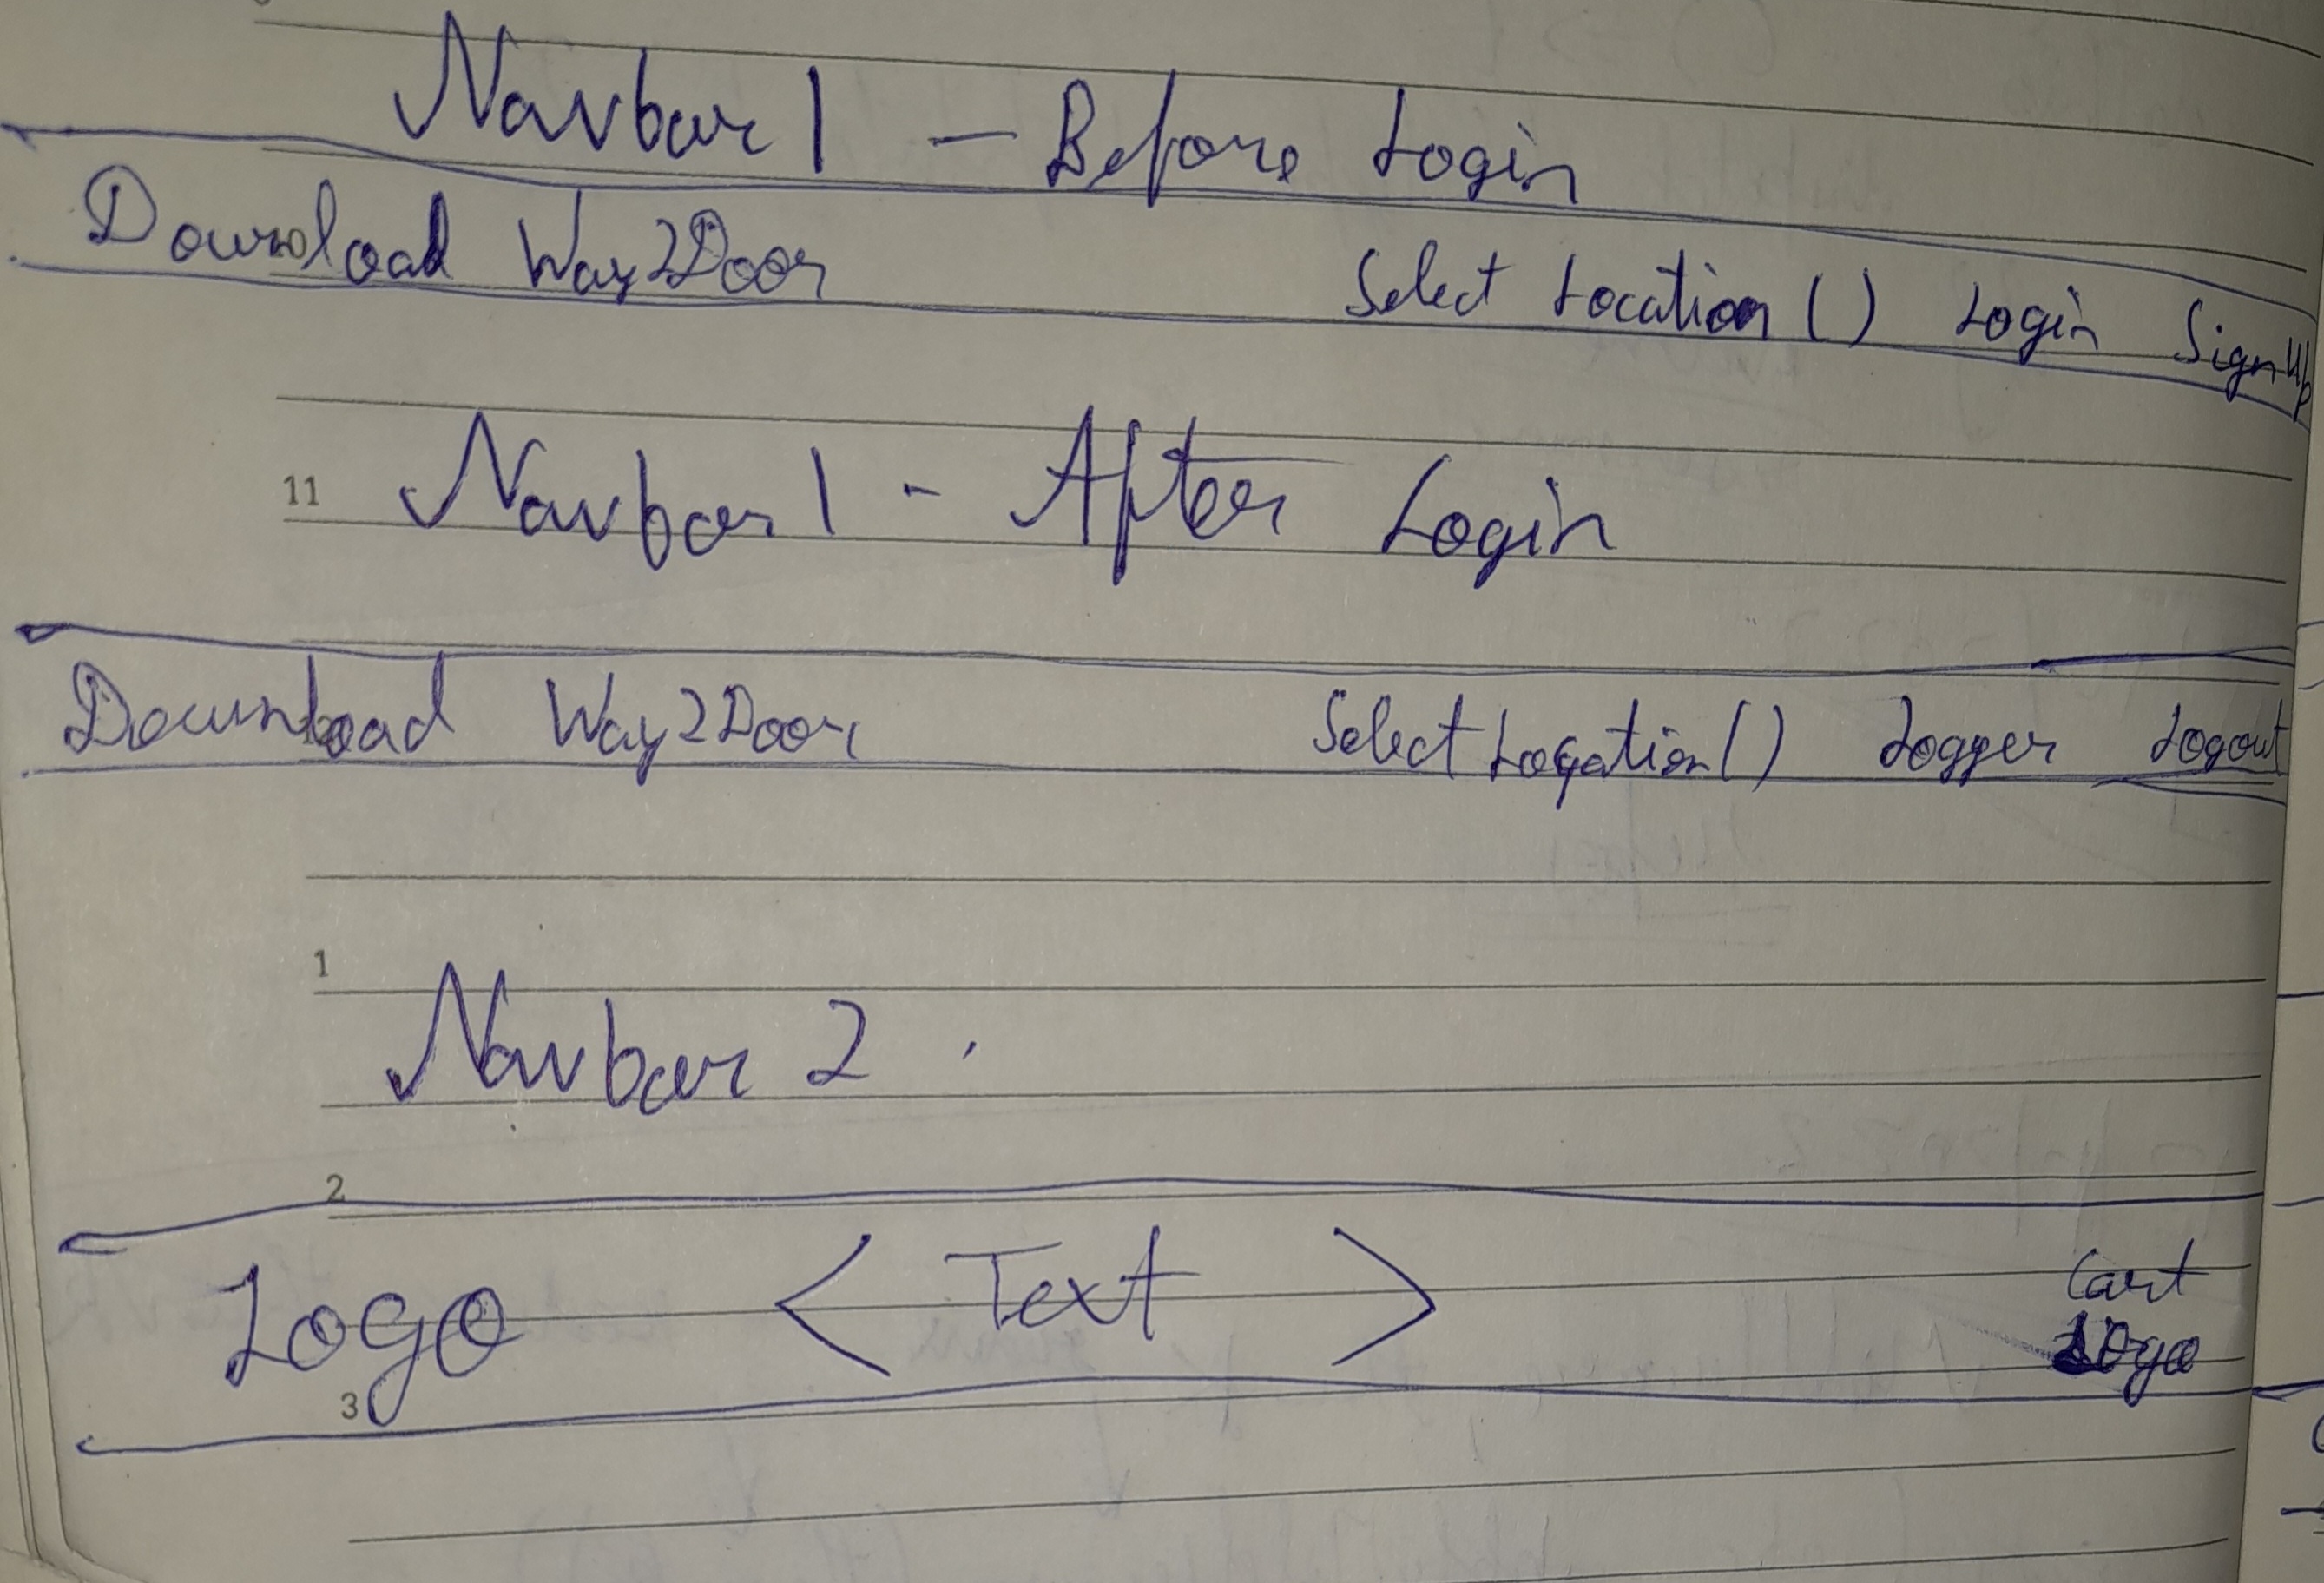 Navbar 1 - Before Login
Download Way2Door Select Location () Login SignUp
11
Navbar 1 - After Login
Download Way2Door Select Location () Logger Logout
1
Navbar 2
2
Logo < Text > Cart Logo
3